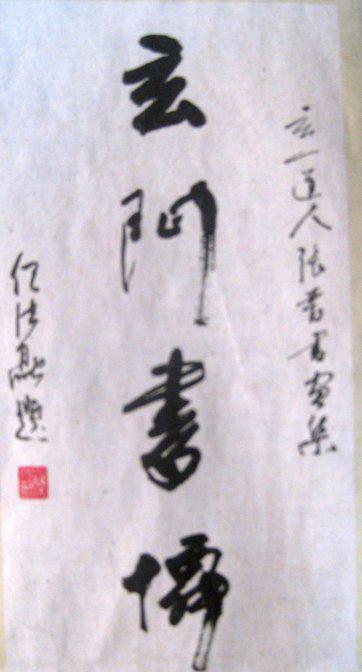 玄一道人張書畫集
玄門書儒
任法融題